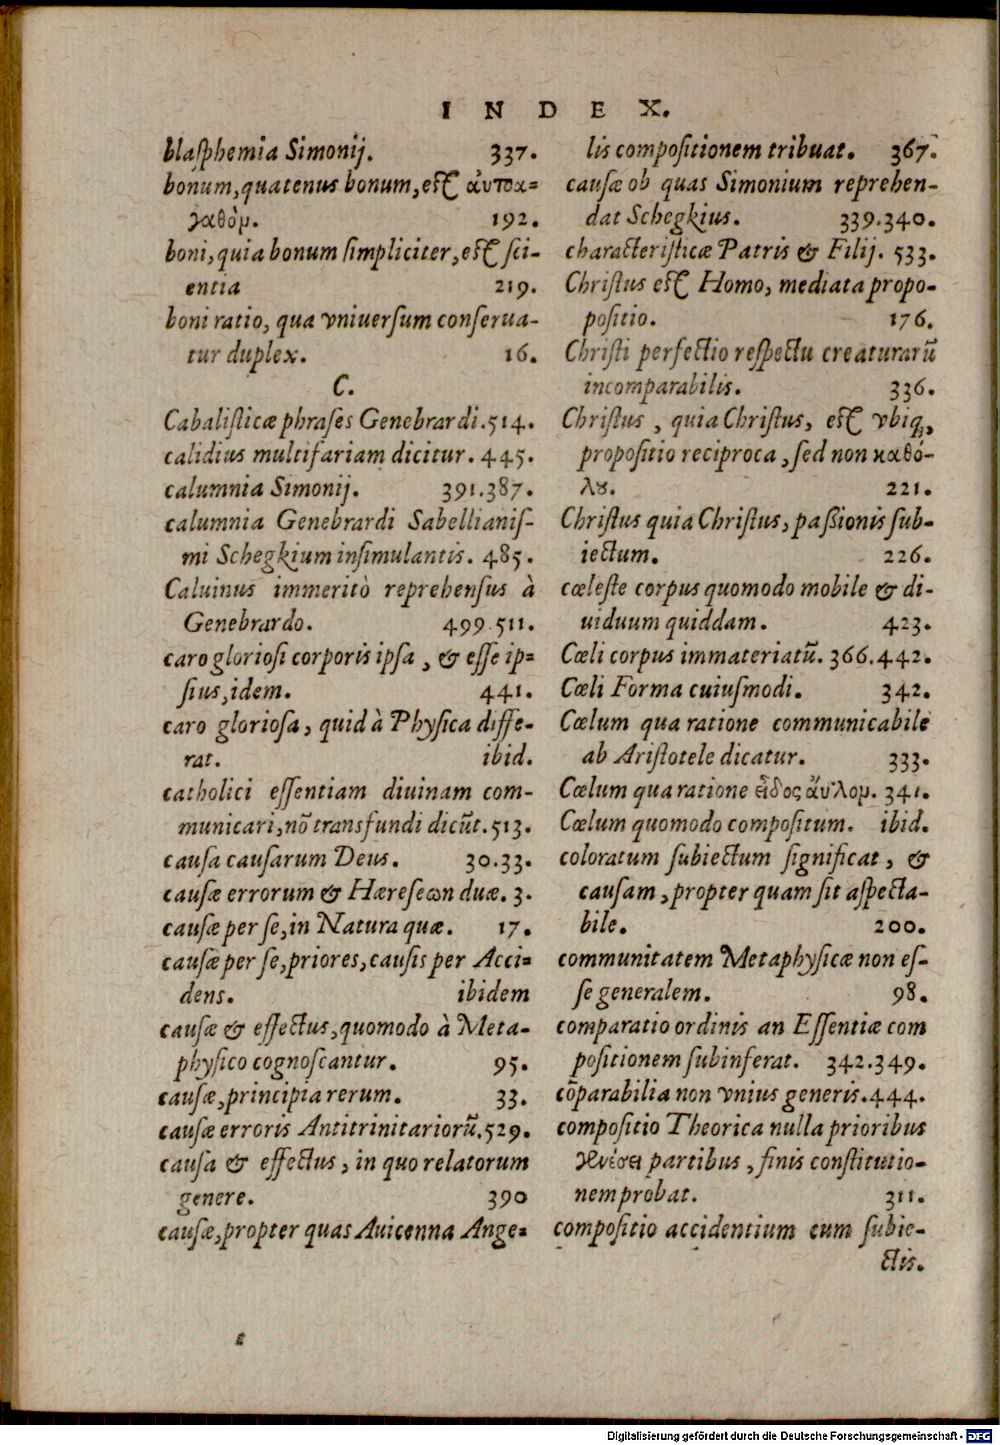 INDEX.
blasphemia Simonij. 337.
bonum, quatenus bonum, est αὐτοα-
γαθόμ. 192.
boni, quia bonum simpliciter, est sci-
entia 219.
boni ratio, qua vniuersum conserua-
tur duplex. 16.
C.
Cabalisticæ phrases Genebrardi. 514.
calidius multifariam dicitur. 445.
calumnia Simonij. 391.387.
calumnia Genebrardi Sabellianis-
mi Schegkium insimulantis. 485.
Caluinus immeritò reprehensus à
Genebrardo. 499.511.
caro gloriosi corporis ipsa, & esse ip-
sius, idem. 441.
caro gloriosa, quid à Physica diffe-
rat. ibid.
catholici essentiam diuinam com-
municari, nō transfundi dicūt. 513.
causa causarum Deus. 30.33.
causæ errorum & Hæreseων duæ. 3.
causæ per se, in Natura quæ. 17.
causæ per se, priores, causis per Acci-
dens. ibidem
causæ & effectus, quomodo à Meta-
physico cognoscantur. 95.
causæ, principia rerum. 33.
causæ erroris Antitrinitariorū. 529.
causa & effectus, in quo relatorum
genere. 390
causæ, propter quas Auicenna Ange-
lis compositionem tribuat. 367.
causæ ob quas Simonium reprehen-
dat Schegkius. 339.340.
characteristicæ Patris & Filij. 533.
Christus est Homo, mediata propo-
positio. 176.
Christi perfectio respectu creaturarū
incomparabilis. 336.
Christus, quia Christus, est vbiq;,
propositio reciproca, sed non καθό-
λȣ. 221.
Christus quia Christus, passionis sub-
iectum. 226.
cœleste corpus quomodo mobile & di-
uiduum quiddam. 423.
Cœli corpus immateriatū. 366.442.
Cœli Forma cuiusmodi. 342.
Cœlum qua ratione communicabile
ab Aristotele dicatur. 333.
Cœlum qua ratione εἶδος ἄυλομ. 341.
Cœlum quomodo compositum. ibid.
coloratum subiectum significat, &
causam, propter quam sit aspecta-
bile. 200.
communitatem Metaphysicæ non es-
se generalem. 98.
comparatio ordinis an Essentiæ com
positionem subinferat. 342.349.
cōparabilia non vnius generis. 444.
compositio Theorica nulla prioribus
γενέσει partibus, finis constitutio-
nem probat. 311.
compositio accidentium cum subie-
ctis.
Digitalisierung gefördert durch die Deutsche Forschungsgemeinschaft - DFG